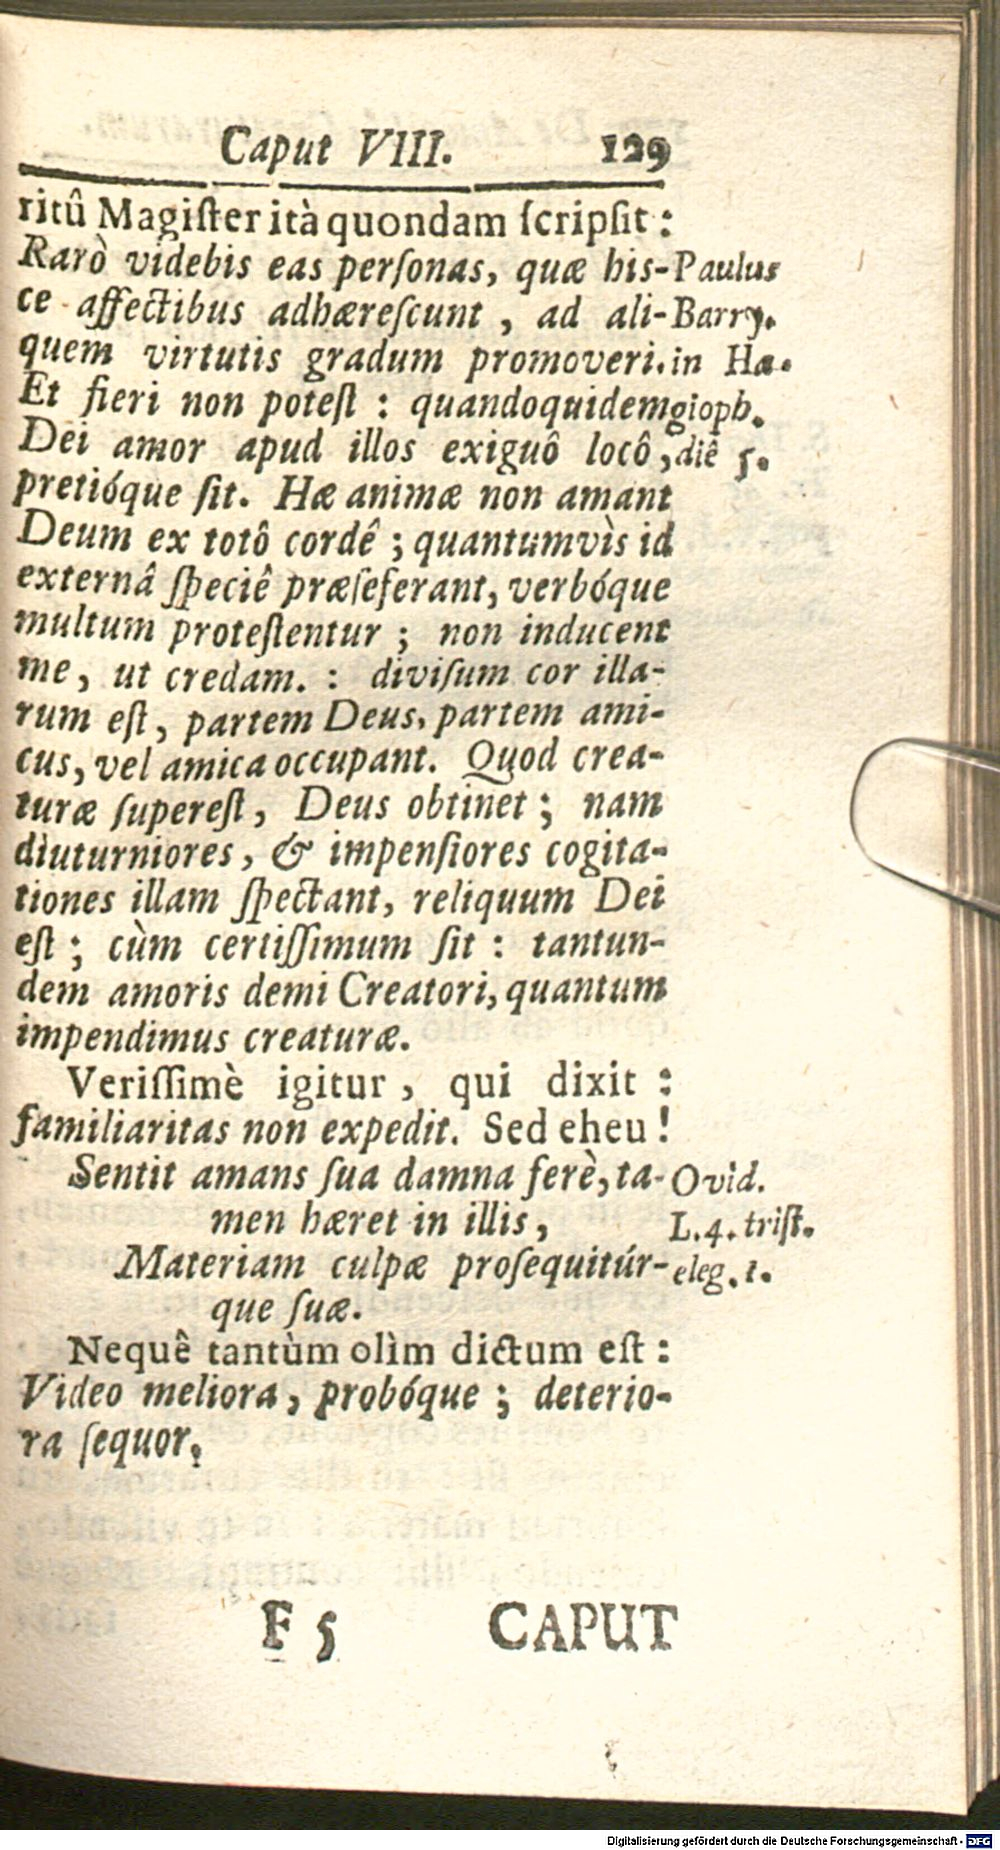 Caput VIII. 129
ritû Magiſter ità quondam ſcripſit :
Rarò videbis eas perſonas, quæ his- Paulus
ce affectibus adhæreſcunt , ad ali- Barry.
quem virtutis gradum promoveri. in Ha.
Et fieri non poteſt : quandoquidem gioph.
Dei amor apud illos exiguô locô , diê 5.
pretióque ſit. Hæ animæ non amant
Deum ex totô cordê ; quantumvìs id
externâ ſpeciê præſeferant, verbóque
multum proteſtentur ; non inducent
me, ut credam. : diviſum cor illa-
rum eſt, partem Deus, partem ami-
cus, vel amica occupant. Quod crea-
turæ ſupereſt, Deus obtinet ; nam
diuturniores, & impenſiores cogita-
tiones illam ſpectant, reliquum Dei
eſt ; cùm certiſſimum ſit : tantun-
dem amoris demi Creatori, quantum
impendimus creaturæ.
Veriſſimè igitur , qui dixit :
familiaritas non expedit. Sed eheu !
Sentit amans ſua damna ferè, ta- Ovid.
men hæret in illis, L. 4. triſt.
Materiam culpæ proſequitúr- eleg. 1.
que ſuæ.
Nequê tantùm olìm dictum eſt :
Video meliora, probóque ; deterio-
ra ſequor.
F 5 CAPUT
Digitalisierung gefördert durch die Deutsche Forschungsgemeinschaft - DFG